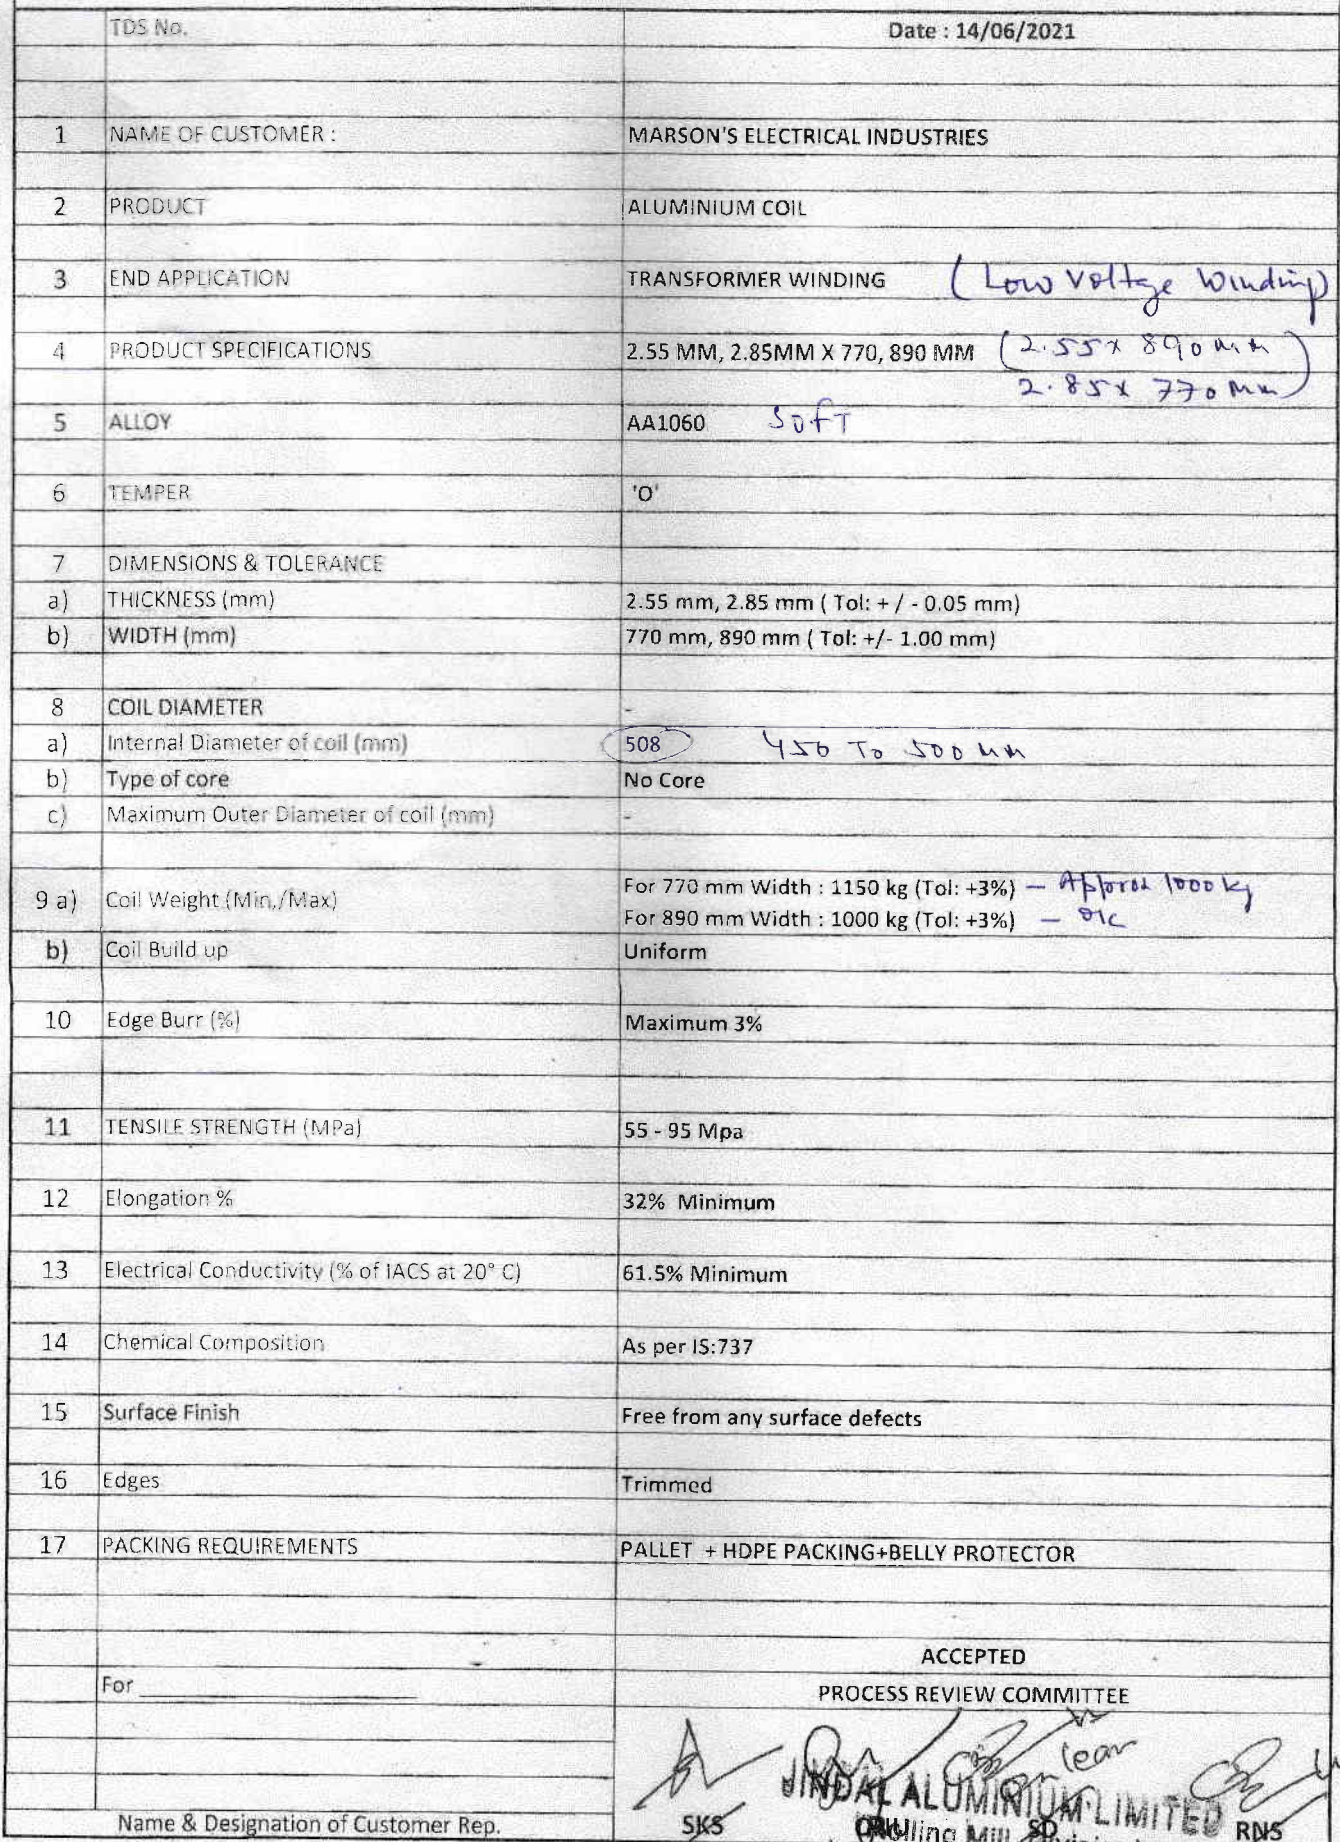 TDS No. Date : 14/06/2021
1 NAME OF CUSTOMER : MARSON'S ELECTRICAL INDUSTRIES
2 PRODUCT ALUMINIUM COIL
3 END APPLICATION TRANSFORMER WINDING (Low Voltage Winding)
4 PRODUCT SPECIFICATIONS 2.55 MM, 2.85MM X 770, 890 MM (2.55 x 890 mm
2.85 x 770 mm)
5 ALLOY AA1060 SOFT
6 TEMPER 'O'
7 DIMENSIONS & TOLERANCE
a) THICKNESS (mm) 2.55 mm, 2.85 mm ( Tol: + / - 0.05 mm)
b) WIDTH (mm) 770 mm, 890 mm ( Tol: +/- 1.00 mm)
8 COIL DIAMETER -
a) Internal Diameter of coil (mm) 508 450 To 500 mm
b) Type of core No Core
c) Maximum Outer Diameter of coil (mm) -
9 a) Coil Weight (Min./Max) For 770 mm Width : 1150 kg (Tol: +3%) – Approx 1000 kg
For 890 mm Width : 1000 kg (Tol: +3%) – OK
b) Coil Build up Uniform
10 Edge Burr (%) Maximum 3%
11 TENSILE STRENGTH (MPa) 55 - 95 Mpa
12 Elongation % 32% Minimum
13 Electrical Conductivity (% of IACS at 20° C) 61.5% Minimum
14 Chemical Composition As per IS:737
15 Surface Finish Free from any surface defects
16 Edges Trimmed
17 PACKING REQUIREMENTS PALLET + HDPE PACKING+BELLY PROTECTOR
ACCEPTED
For PROCESS REVIEW COMMITTEE
JINDAL ALUMINIUM LIMITED
Name & Designation of Customer Rep. SKS Rolling Mill SD RNS